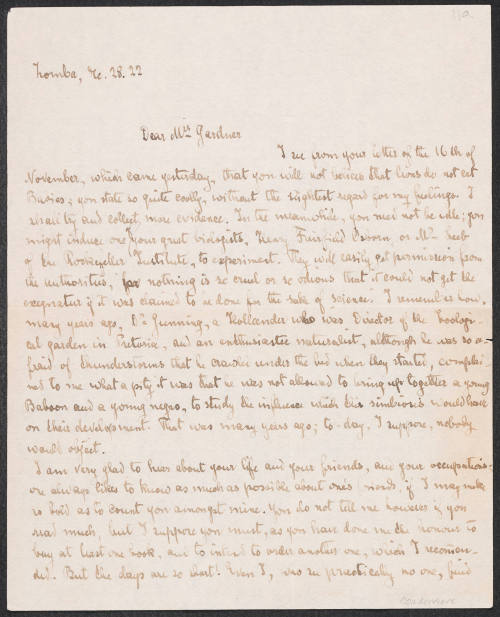 Zomba, Dec. 28. 22
Dear Mrs Gardner
I see from your letter of the 16th of
November, which came yesterday, that you will not believe that lions do not eat
you state so quite coolly, without the slightest regard for my feelings. I
shall try and collect more evidence. In the meanwhile, you need not be idle; you
might induce one of your great biologists, Henry Fairfield Osborn, or Mr Loeb
of the Rockefeller Institute, to experiment. They will easily get permission from
the authorities, for nothing is so cruel or so odious that it could not get the
exequatur if it was claimed to be done for the sake of science. I remember how,
many years ago, Dr Gunning, a Hollander who was Director of the Zoologi-
cal garden in Pretoria, and an enthusiastic naturalist, although he was so a-
fraid of thunderstorms that he crawled under the bed when they started, complai-
ned to me what a pity it was that he was not allowed to bring up together a young
Baboon and a young negro, to study the influence which this simbiosis would have
on their development. That was many years ago; to-day, I suppose, nobody
would object.
I am very glad to hear about your life and your friends, and your occupations
one always likes to know as much as possible about one's friends, if I may make
so bold as to count you amongst mine. You do not tell me however if you
read much, but I suppose you must, as you have done me the honour to
buy at least one book, and to intend to order another one, which I recomen-
ded. But the days are so short! Even I, who see practically no one, find